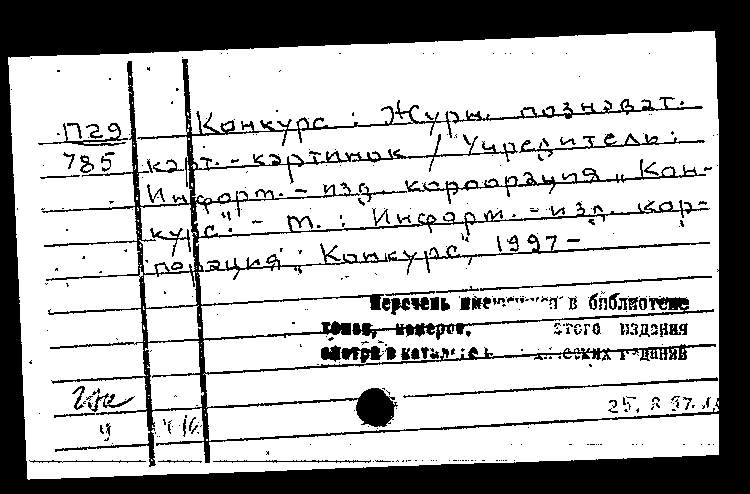 П29 Конкурс : Журн. познават.
785 карт.-картинок / Учредитель:
Информ.-изд. корпорация „Кон-
курс". - М. : Информ.-изд. кор-
порация „Конкурс", 1997-
Перечень имеющихся в библиотеке
томов, номеров, этого издания
смотри в каталоге изданий
25. 8 97.